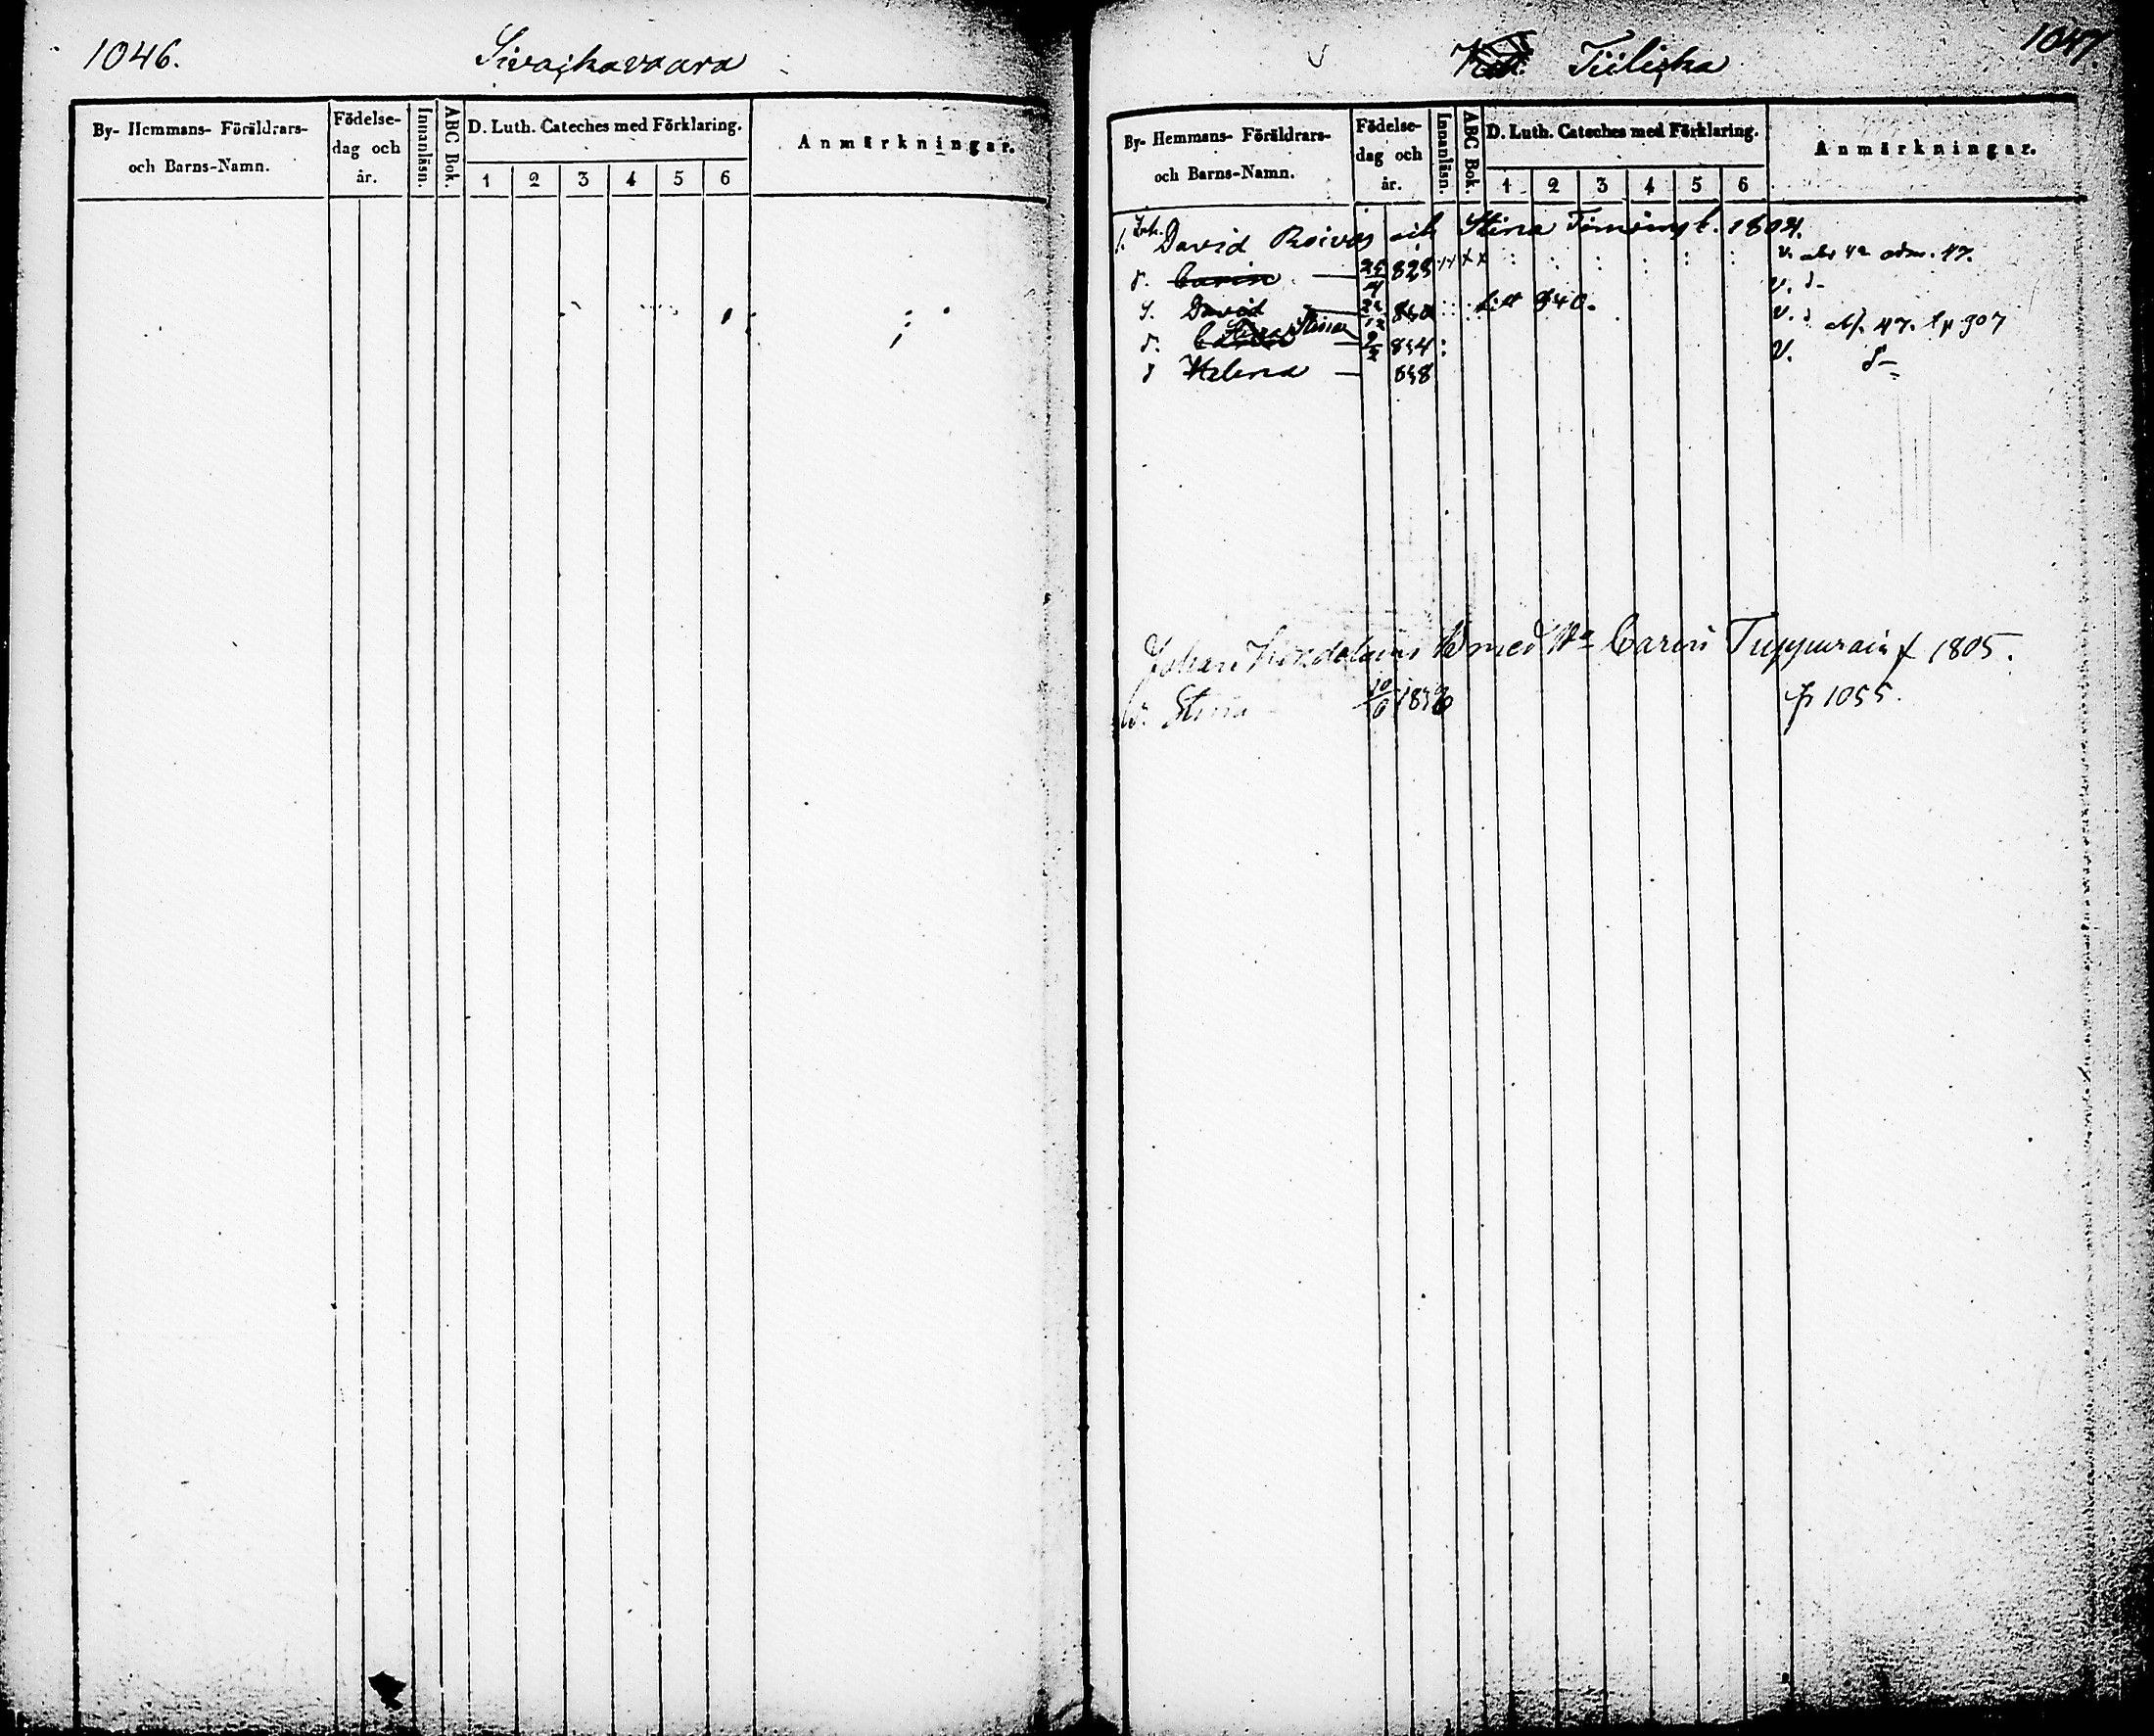 1046.
Sivajkavaara
By- Hemmans- Föräldrars- och Barns-Namn.
Födelse- dag och år.
Innanläsn.
ABC Bok.
D. Luth. Cateches med Förklaring.
1 2 3 4 5 6
Anmärkningar.
1047.
Tiilicka
By- Hemmans- Föräldrars- och Barns-Namn.
Födelse- dag och år.
Innanläsn.
ABC Bok.
D. Luth. Cateches med Förklaring.
1 2 3 4 5 6
Anmärkningar.
1. David Roivas och Stina 1804.
d. Carin 25/4 828 v.
S. David 840 v.
d. Stina 2/2 834 v. 47. 907
d Helena 838 v. d-
Johan med Carin Tuppurain f 1805.
d. Stina 10/6 1836 p 1055.